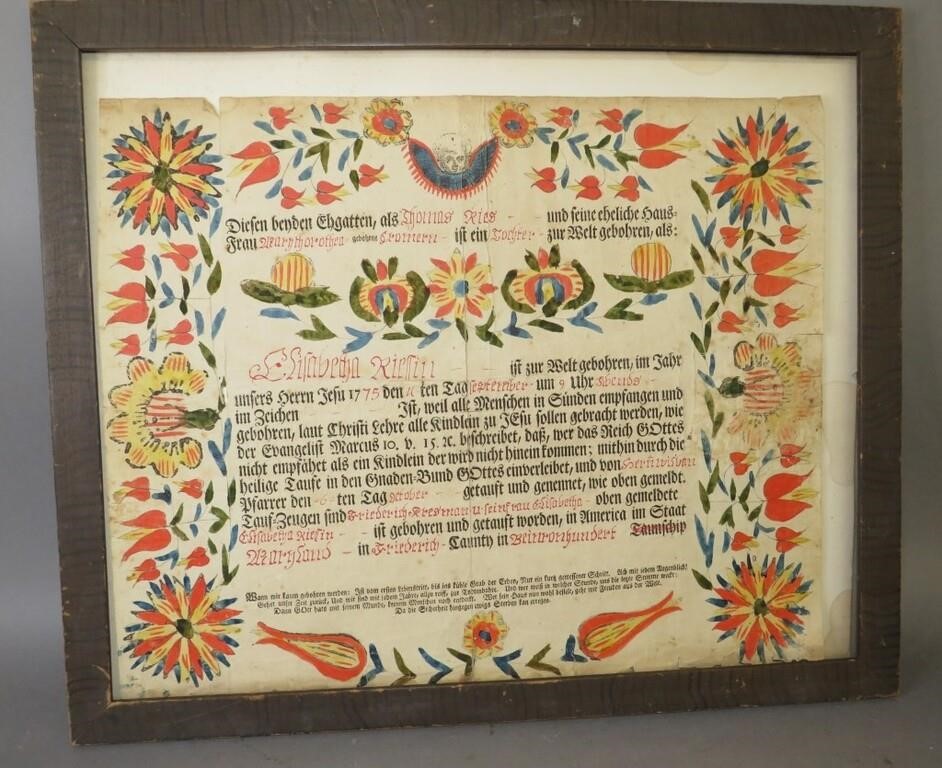 Diesen beyden Ehgatten, als Thomas Ries und seine eheliche Haus=
Frau gebohrne Cromern ist ein Tochter zur Welt gebohren, als:
Elisabetha Riesin ist zur Welt gebohren, im Jahr
unsers Herrn Jesu 1775 den ten Tag September um 9 Uhr Abends
im Zeichen Ist, weil alle Menschen in Sünden empfangen und
gebohren, laut Christi Lehre alle Kindlein zu JEsu sollen gebracht werden, wie
der Evangelist Marcus 10. v. 15. ꝛc. beschreibet, daß, wer das Reich GOttes
nicht empfähet als ein Kindlein der wird nicht hinein kommen; mithin durch die
heilige Taufe in den Gnaden=Bund GOttes einverleibet, und von Herrn
Pfarrer den 6 ten Tag October getauft und genennet, wie oben gemeldt.
Tauf=Zeugen sind Friederich u sein frau Elisabetha oben gemeldete
Elisabetha Riesin ist gebohren und getauft worden, in America im Staat
Maryland in Friederich Caunty in Taunschip
Wann wir kaum gebohren werden: Ist vom ersten Lebenstritt, bis ins kühle Grab der Erden, Nur ein kurz gemessener Schritt. Ach mit jedem Augenblick!
Gehet unser Zeit zurück, Und wir sind mit jedem Jahre, allzu reiff, zur Todtenbahre. Und wer weiß in welcher Stunde, uns die letzte Stimme weckt:
Dann GOtt hats mit seinem Munde, keinem Menschen noch entdeckt. Wer sein Haus nun wohl bestellt, geht mit Freuden aus der Welt.
Da die Sicherheit hingegen ewigs Sterben kan erregen.